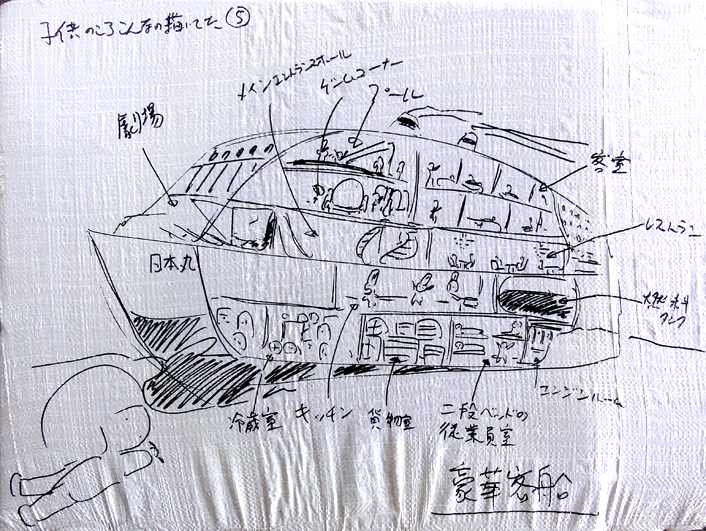 子供のころこんなの描いてた⑤
メインエントランスホール
ゲームコーナー
プール
劇場
客室
レストラン
日本丸
燃料
タンク
エンジンルーム
冷蔵室
キッチン
貨物室
二段ベッドの
従業員室
豪華客船